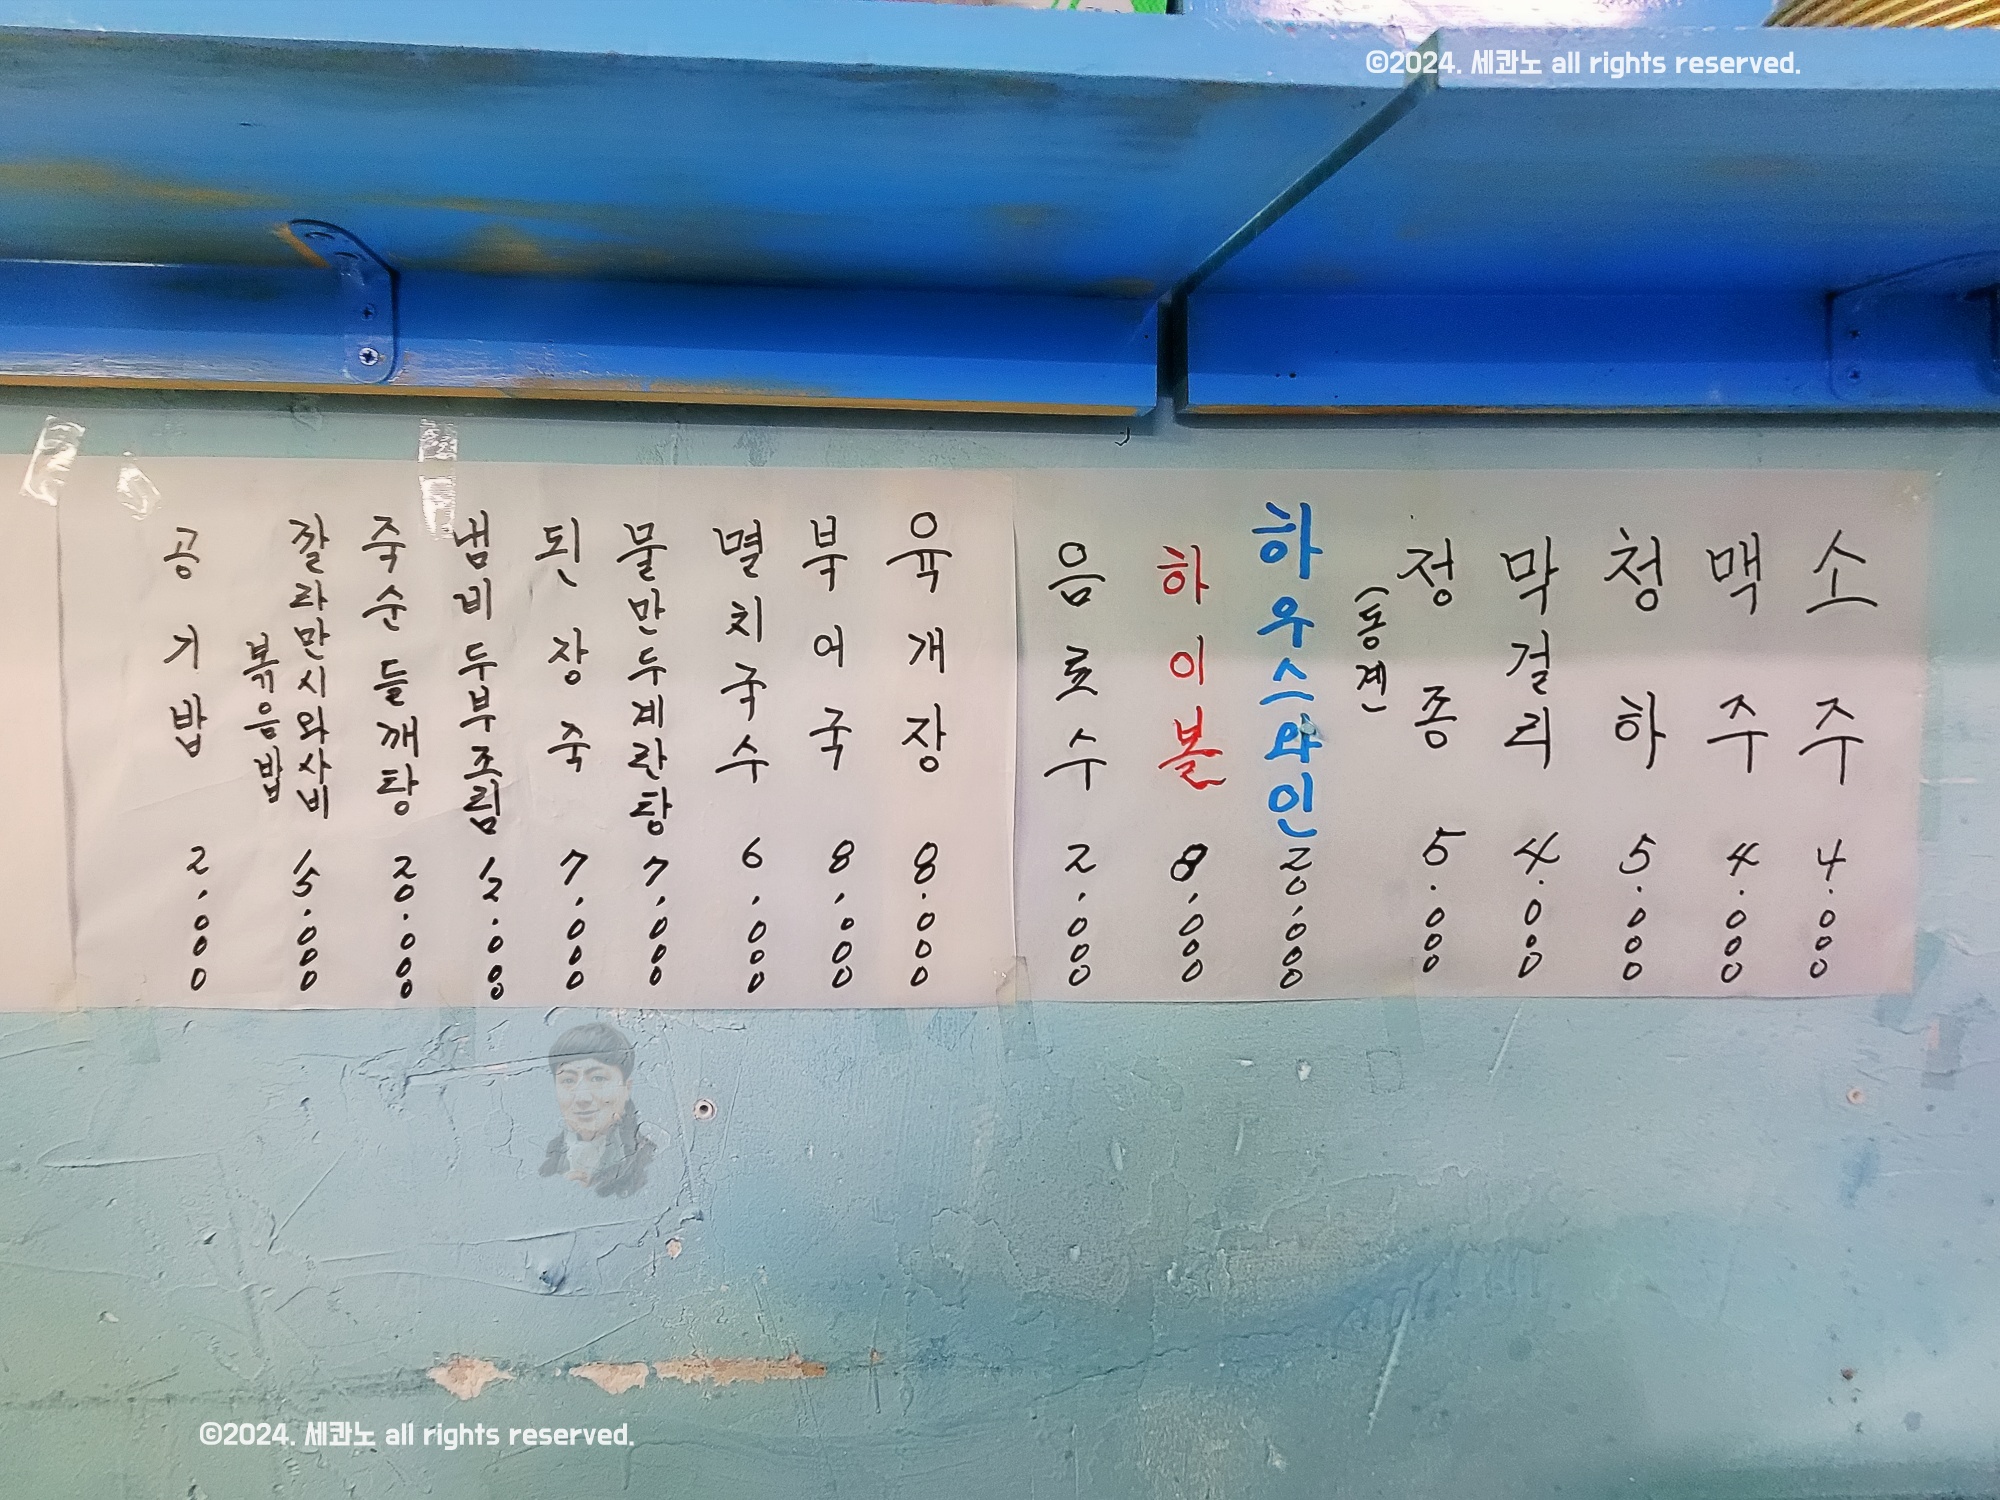 ©2024. 세콴노 all rights reserved.
공기밥 2,000
잘라만시와사비 볶음밥 15.000
죽순들깨탕 20.000
냄비두부조림 12.000
된장죽 7,000
물만두계란탕 7,000
멸치국수 6,000
북어국 8,000
육개장 8.000
음료수 2.000
하이볼 8,000
하우스와인 20,000
정종 (동계) 5.000
막걸리 4.000
청하 5.000
맥주 4.000
소주 4.000
©2024. 세콴노 all rights reserved.